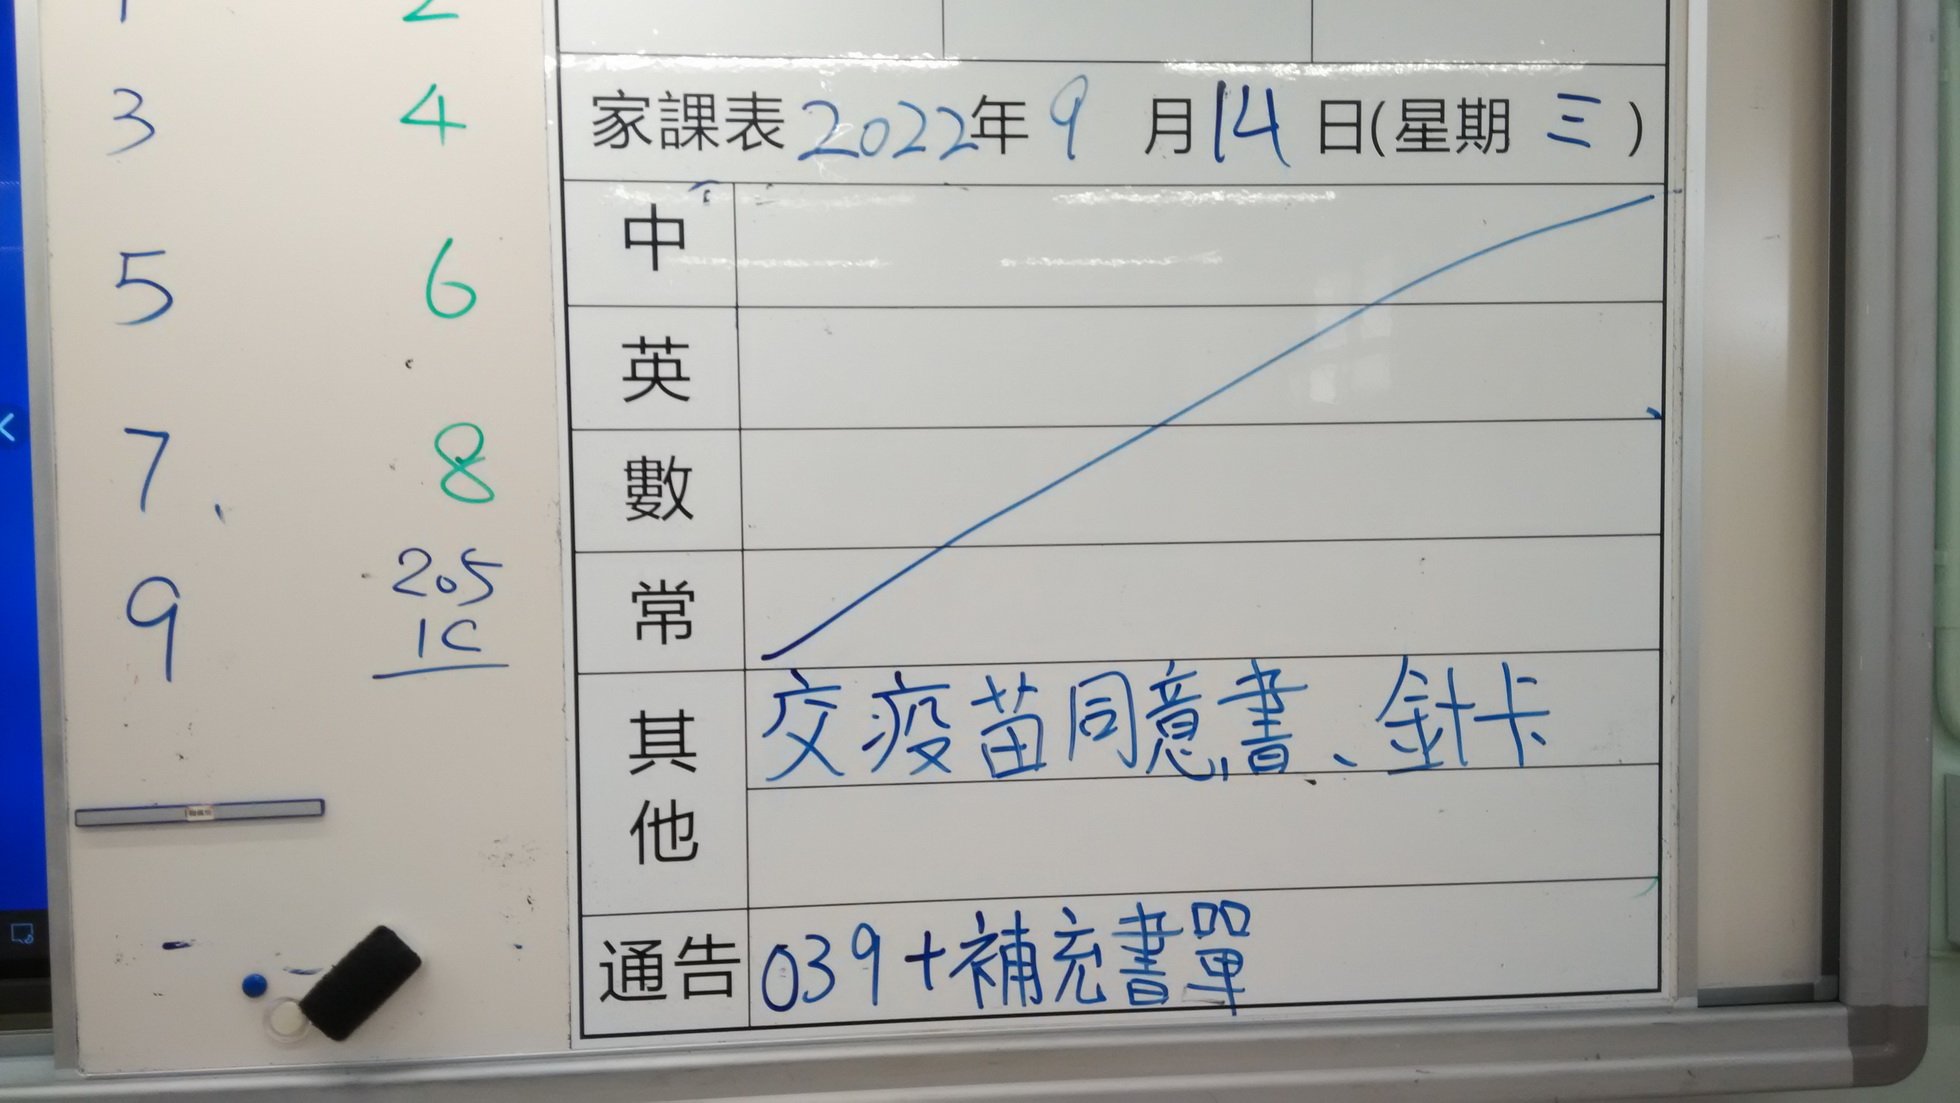 1 2
3 4
5 6
7 8
9 205
1C
家課表 2022年 9 月 14 日(星期 三)
中
英
數
常
其他 交疫苗同意書、針卡
通告 039+補充書單